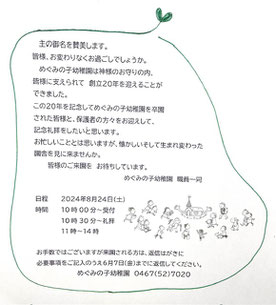 主の御名を賛美します。
皆様、お変わりなくお過ごしでしょうか。
めぐみの子幼稚園は神様のお守りの内、
皆様に支えられて 創立20年を迎えることが
できました。
この20年を記念してめぐみの子幼稚園を卒園
された皆様と、保護者の方々をお迎えして、
記念礼拝をしたいと思います。
お忙しいこととは思いますが、懐かしいそして生まれ変わった
園舎を見に来ませんか。
皆様のご来園を お待ちしています。
めぐみの子幼稚園 職員一同
日程 2024年8月24日(土)
時間 10時00分~受付
10時30分~礼拝
11時~14時
お手数ではございますが来園される方は、返信はがきに
必要事項をご記入のうえ6月7日(金)までに返信してください。
めぐみの子幼稚園 0467(52)7020